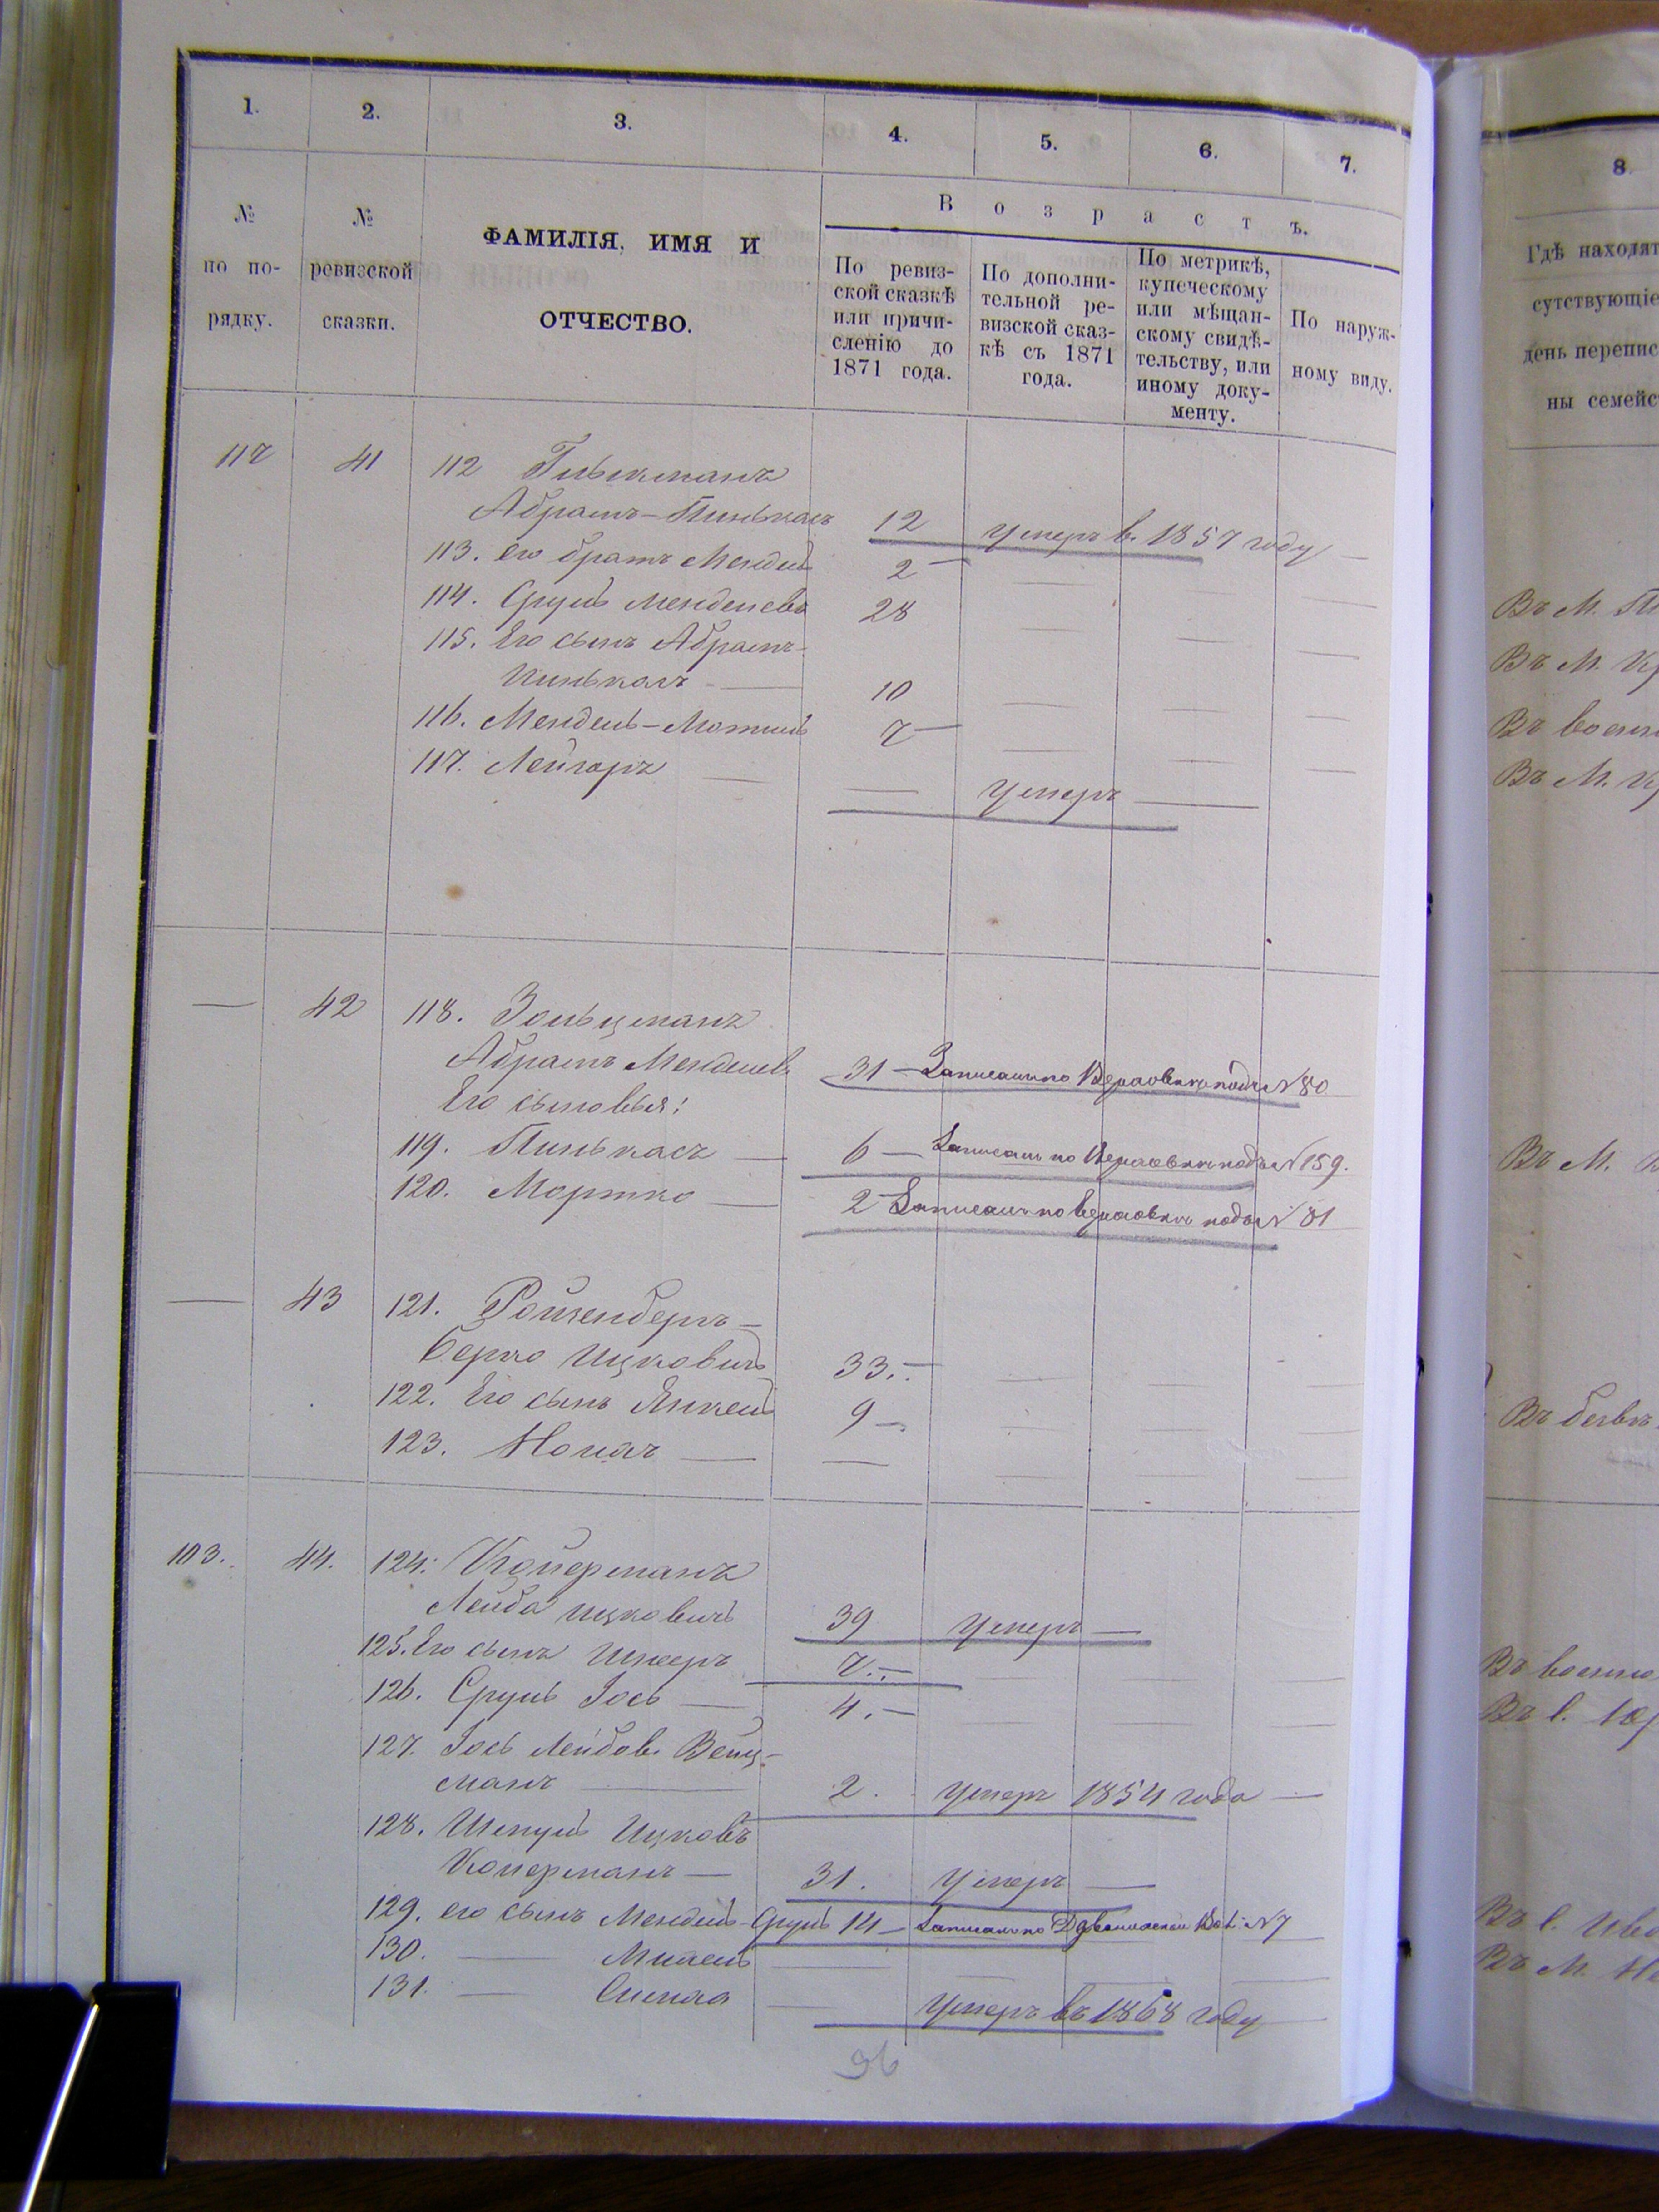 1. 2. 3. 4. 5. 6. 7.
№ по порядку.
№ ревизской сказки.
ФАМИЛІЯ, ИМЯ И
ОТЧЕСТВО.
Возрастъ.
По ревиз-
ской сказкѣ
или причи-
сленію до
1871 года.
По дополни-
тельной ре-
визской сказ-
кѣ съ 1871
года.
По метрикѣ,
купеческому
или мѣщан-
скому свидѣ-
тельству, или
иному доку-
менту.
По наруж-
ному виду.
117 41 112
Абрамъ-Пинькасъ 12 умеръ в. 1857 году —
113. его братъ Мендель 2 —
114. Сруль Менделевъ 28
115. Его сынъ Абрамъ-
Пинькасъ — 10
116. Мендель-Мотель 7 —
117. Лейзоръ — — умеръ —
— 42 118. Зольцманъ
Абрамъ Менделев. 31 — Записанъ по подъ № 80
Его сыновья:
119. Пинькасъ — 6 — Записанъ по подъ № 159.
120. Мортко — 2 — Записанъ по подъ № 81
— 43 121. Ройзенбергъ —
Берко Ицковичъ 33. —
122. Его сынъ Янкель 9 —
123. — —
103. 44. 124. Коперманъ
Лейба Ицковичъ 39 умеръ —
125. Его сынъ 7. —
126. Сруль Іось — 4. —
127. Іось Лейбов. Вейц-
манъ — 2. умеръ 1854 года —
128. Шмуль Ицковъ
Коперманъ — 31. умеръ —
129. его сынъ Мендель-Сруль 14 — Записанъ по № 7
130. — —
131. — Симха — умеръ въ 1868 году —
96
8
Гдѣ находят
сутствующіе
день перепис
ны семейс
Въ М.
Въ М.
Въ военн
Въ М.
Въ М.
Въ
Въ военно
Въ
Въ
Въ М.